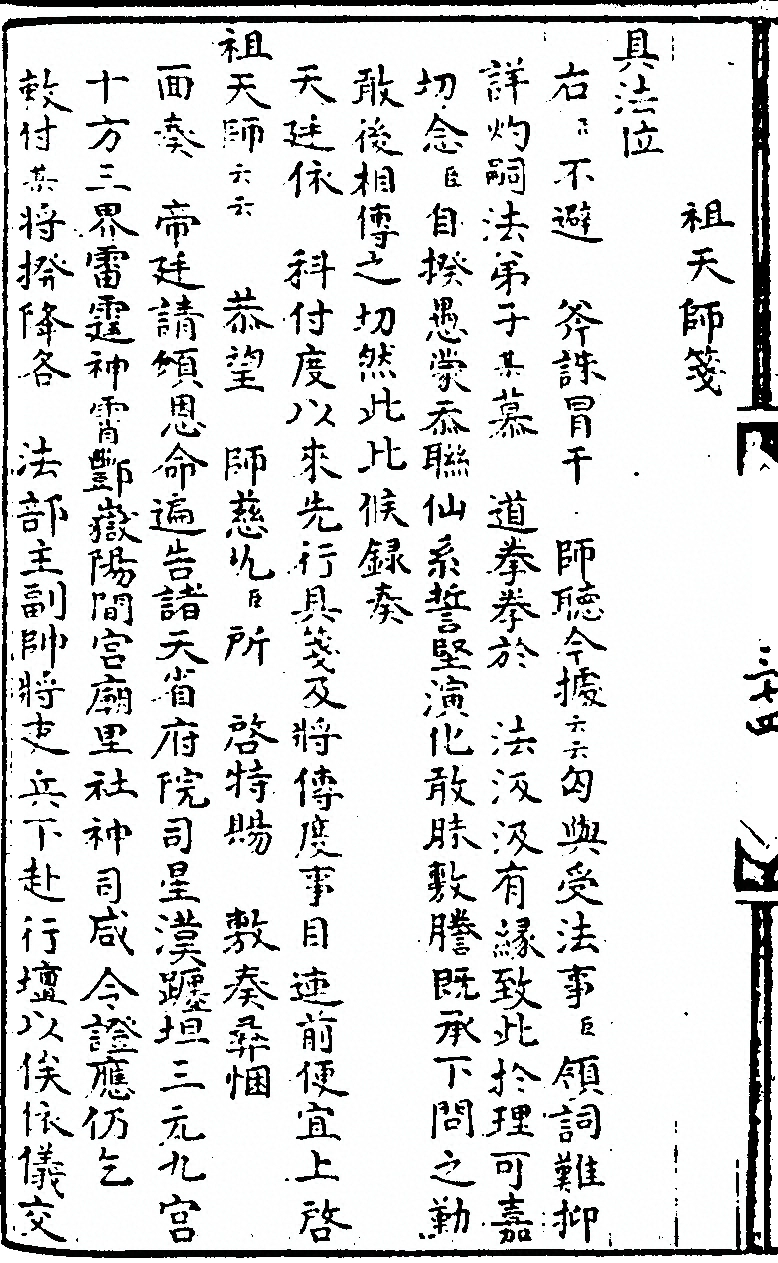 祖天師箋
具法位
右臣不避　斧誅冒干　師聽今據六六勾與受法事臣領詞難抑
詳灼嗣法弟子某慕　道拳拳於　法汲汲有緣致此於理可嘉
切念臣自揆愚蒙忝聯仙系誓堅演化敢昧敷謄既承下問之勤
敢後相傳之切然此比候録奏
天廷依　科付度以來先行具箋及將傳度事目連前便宜上啓
祖天師六六　恭望　師慈允臣所　啓特賜　敷奏彞悃
面奏　帝廷請頒恩命遍告諸天省府院司星漢躔垣三元九宮
十方三界雷霆神霄酆嶽陽間宮廟里社神司咸令證應仍乞
敕付某將揆降各　法部主副帥將吏兵下赴行壇以俟依儀交
三七四